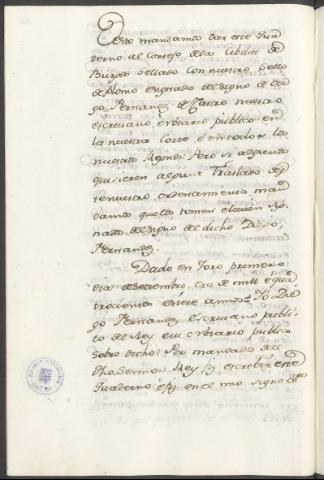 Esto mandamos dar este Qua-
derno al Consejo dela Cibdat de
Burgos sellado con nuestro Sello
de plomo é signado del signo de Die-
go Fernandez de nuestro
escriuano é notario publico en
la nuestra Corte é en todos los
nuestros Regnos. Pero si algunos
quisieren algunt Traslado des-
te nuestro ordenamiento man-
damos que lo tomen è lieven sig-
nado del signo del dicho Diego
Fernandez.
Dado en Toro primero
dia de Setiembre, Era de mill è qua-
trocientos è siete annos. Yo Die-
go Fernandez escriuano publi-
co del Rey è su notario publico
sobre dicho: Por mandado del
dho Sennor Rey fiz escrebir este
Quaderno è fiz en el mio signo